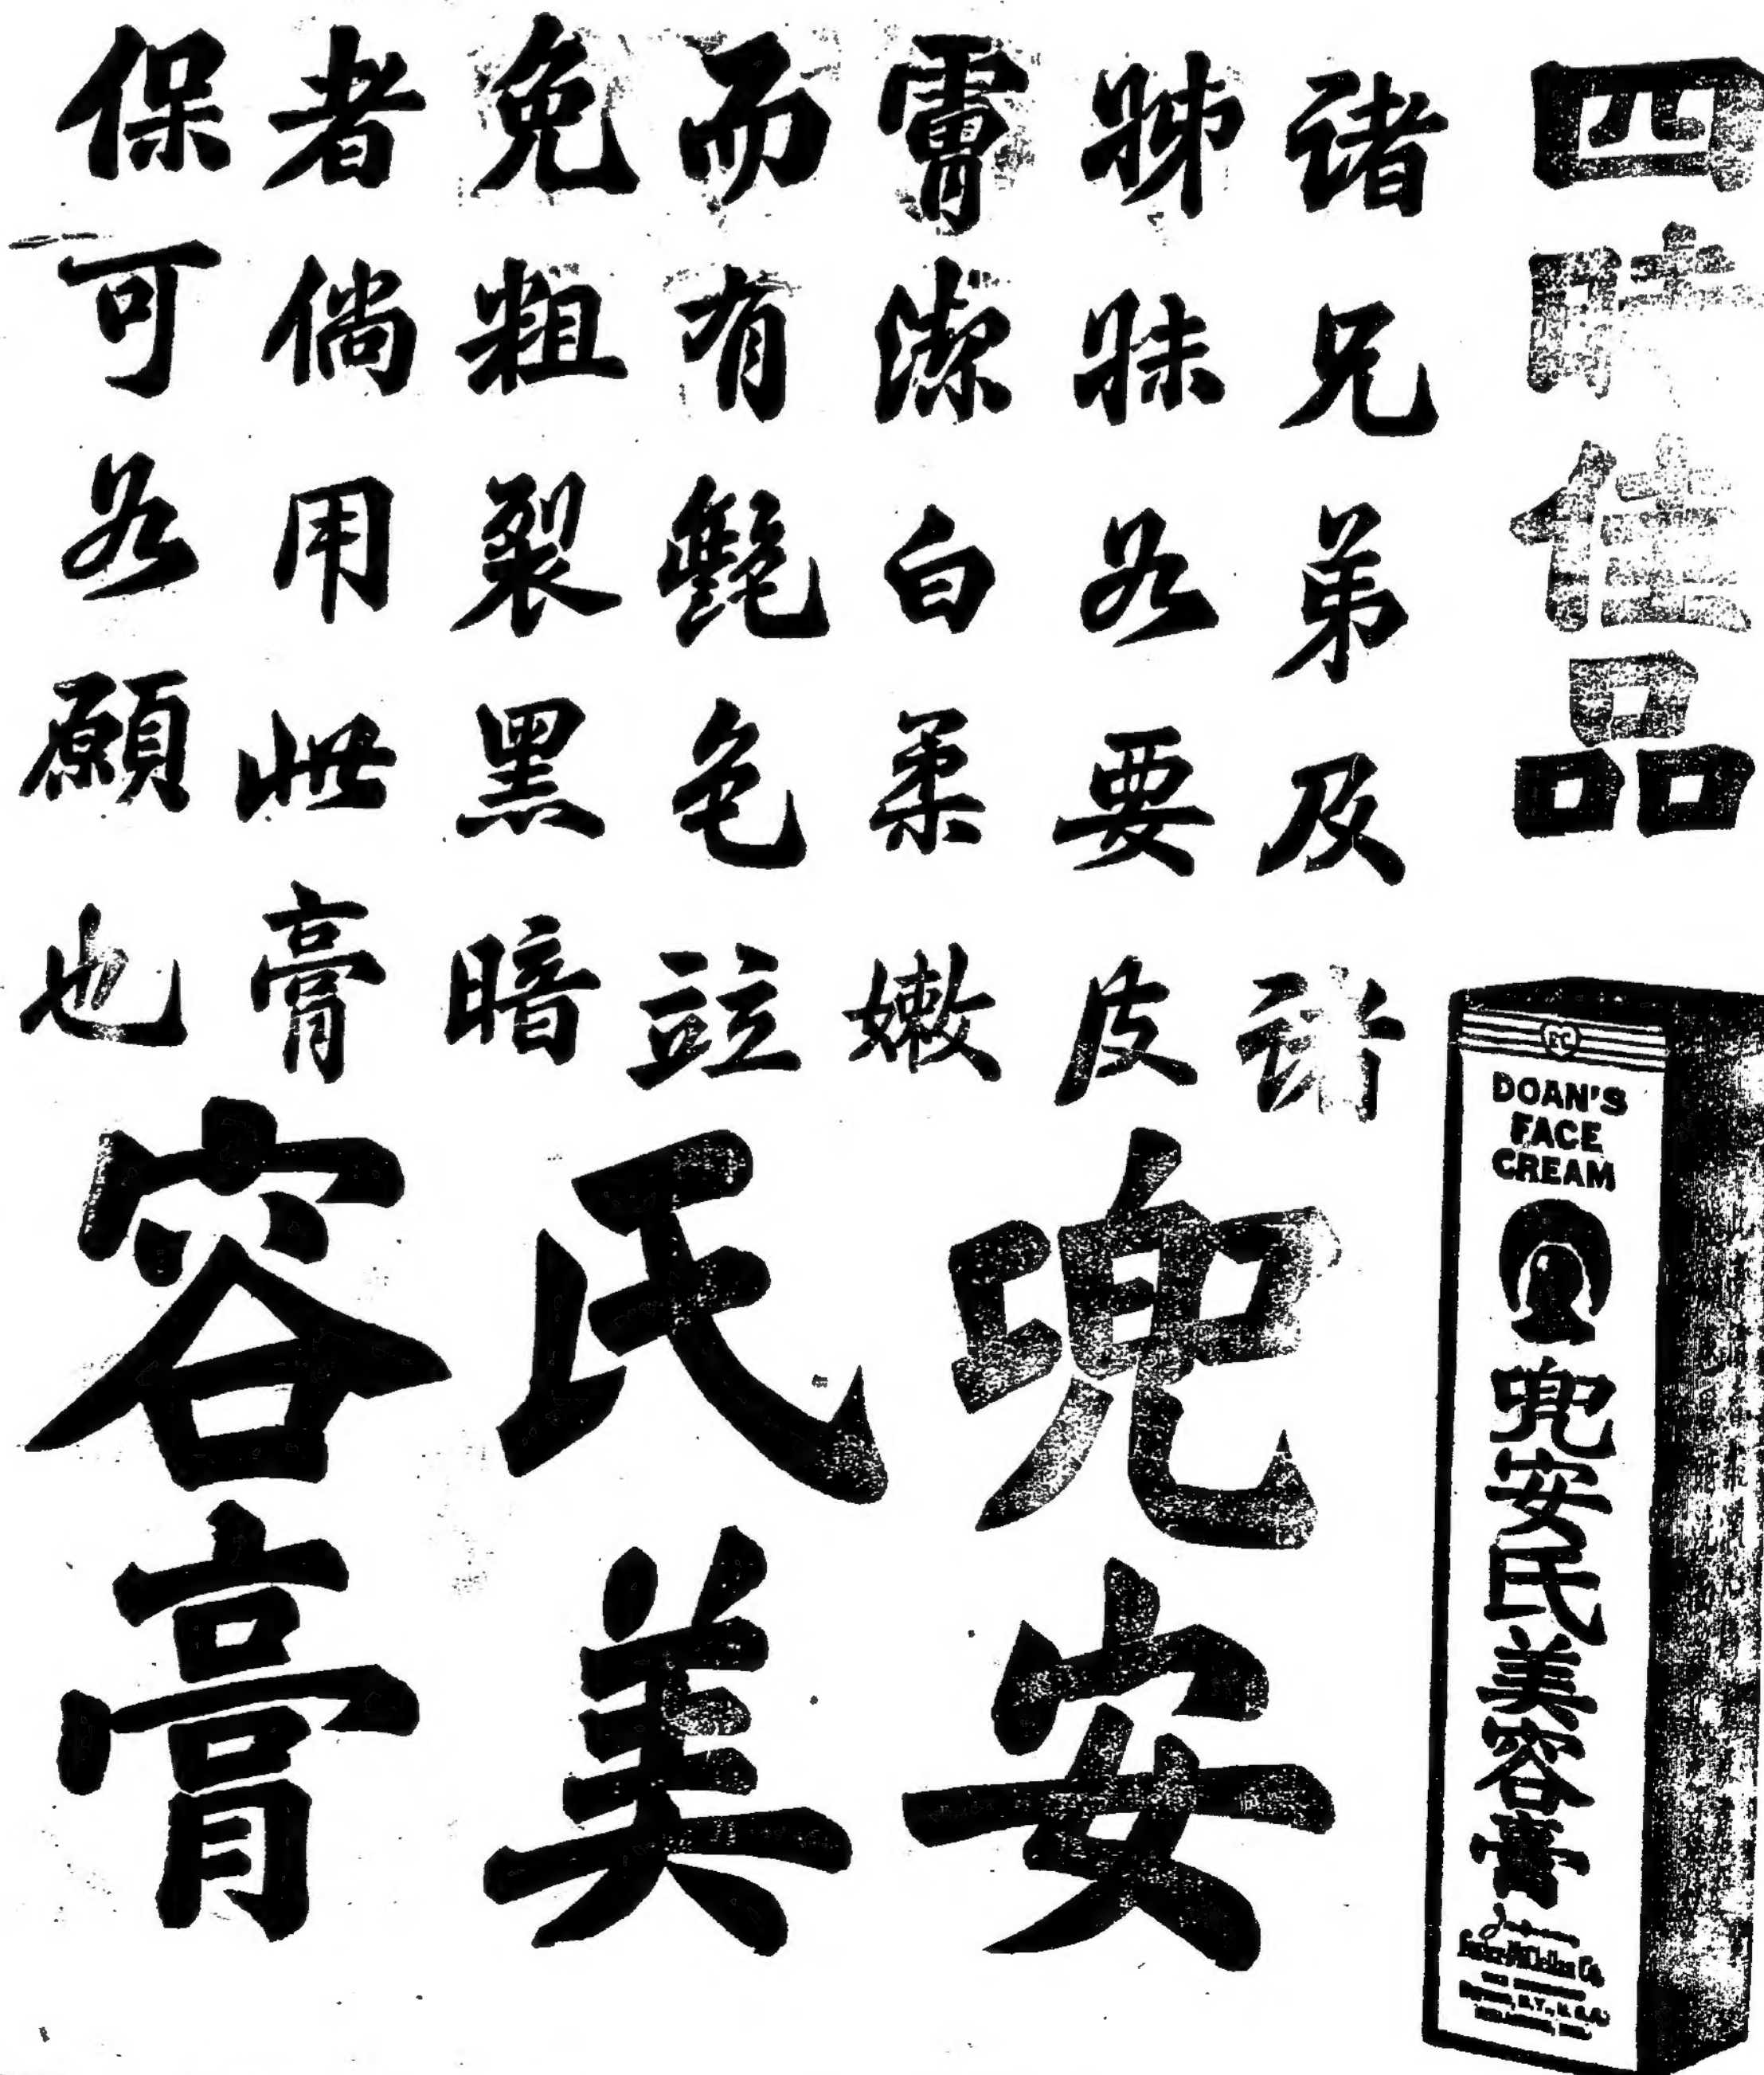 四時佳品
諸兄弟及諸
姊妹若要皮
膚潔白柔嫩
而有艷色竝
免粗裂黑暗
者倘用此膏
保可若願也
兜安
氏美
容膏
DOAN'S
FACE
CREAM
兜安氏美容膏
Foster-McClellan Co.